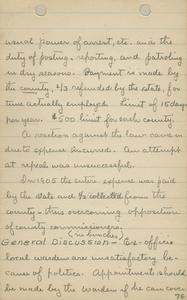 usual power of arrest, etc. and the
duty of posting, reporting, and patroling
in dry seasons. Payment is made by
the county, 2/3 refunded by the state, for
time actually employed. Limit of 15 days
per year. $500 limit for each county.
A reaction against the law came in
due to expense incurred. An attempt
at repeal was unsuccessful.
In 1905 the entire expense was paid
by the state and 1/3 collected from the
county - thus overcoming opposition
of county commissioners.
(in lunches)
General Discussion - Ex-officio
local wardens are unsatisfactory be-
cause of politics. Appointments should
be made by the warden if he can cover